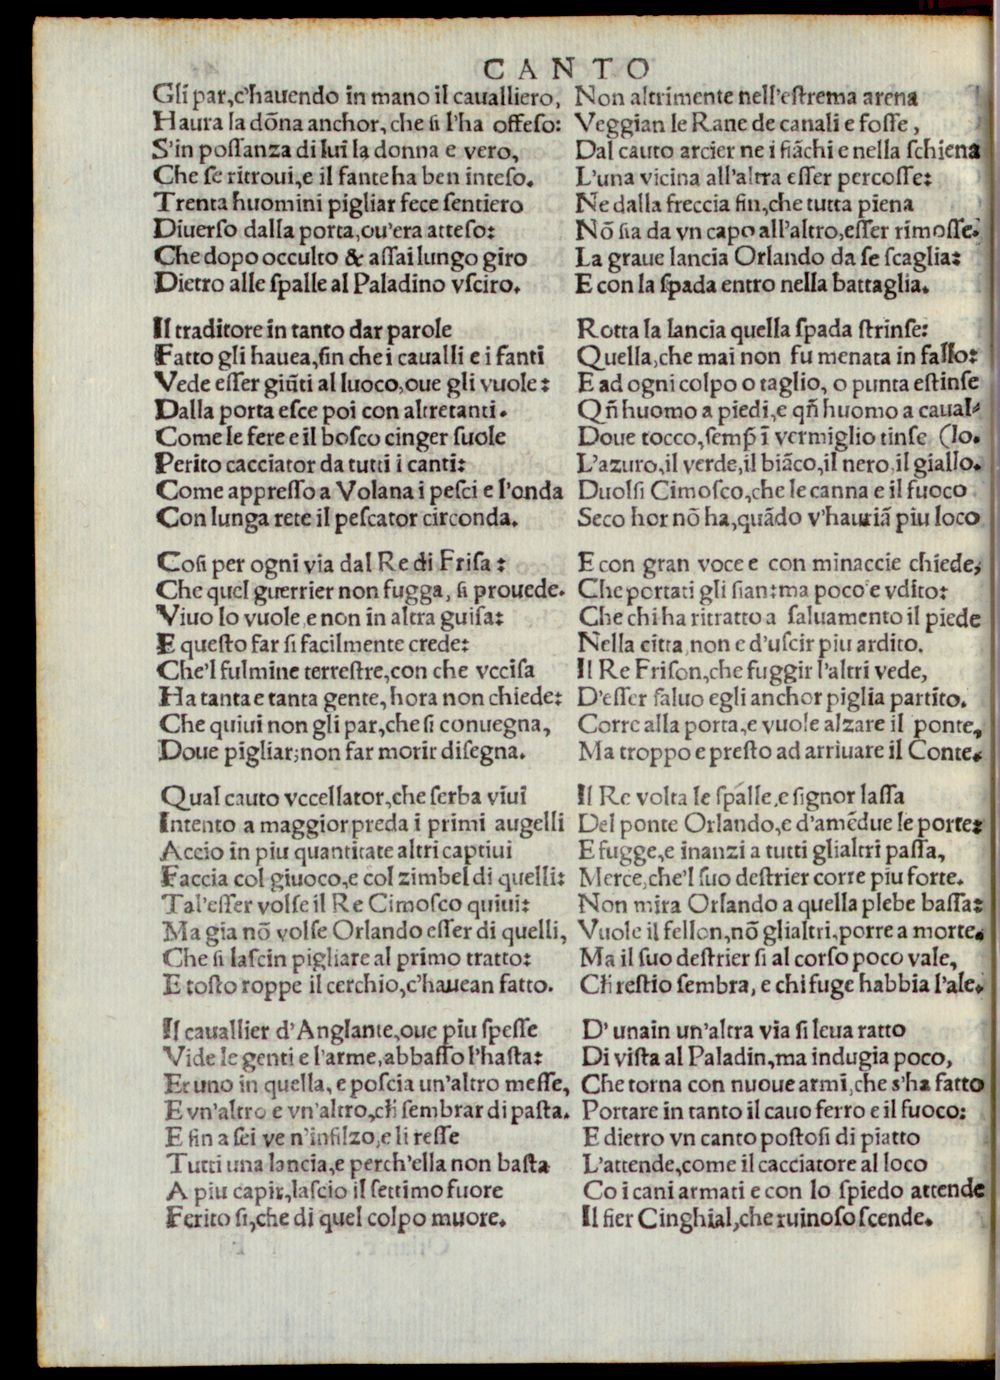 CANTO
Gli par, c'hauendo in mano il caualliero,
Haura la dõna anchor, che si l'ha offeso:
S'in possanza di lui la donna e vero,
Che se ritroui, e il fante ha ben inteso.
Trenta huomini pigliar fece sentiero
Diuerso dalla porta, ou'era atteso:
Che dopo occulto & assai lungo giro
Dietro alle spalle al Paladino vsciro.
Il traditore in tanto dar parole
Fatto gli hauea, sin che i caualli e i fanti
Vede esser giũti al luoco, oue gli vuole:
Dalla porta esce poi con altretanti.
Come le fere e il bosco cinger suole
Perito cacciator da tutti i canti:
Come appresso a Volana i pesci e l'onda
Con lunga rete il pescator circonda.
Cosi per ogni via dal Re di Frisa:
Che quel guerrier non fugga, si prouede.
Viuo lo vuole, e non in altra guisa:
E questo far si facilmente crede:
Che'l fulmine terrestre, con che vccisa
Ha tanta e tanta gente, hora non chiede:
Che quiui non gli par, che si conuegna,
Doue pigliar; non far morir disegna.
Qual cauto vccellator, che serba viui
Intento a maggior preda i primi augelli
Accio in piu quantitate altri captiui
Faccia col giuoco, e col zimbel di quelli:
Tal'esser volse il Re Cimosco quiui:
Ma gia nõ volse Orlando esser di quelli,
Che si lascin pigliare al primo tratto:
E tosto roppe il cerchio, c'hauean fatto.
Il cauallier d'Anglante, oue piu spesse
Vide le genti e l'arme, abbasso l'hasta:
Et uno in quella, e poscia un'altro messe,
E vn'altro e vn'altro, ch̃ sembrar di pasta.
E fin a sei ve n'infilzo, e li resse
Tutti una lancia, e perch'ella non basta
A piu capir, lascio il settimo fuore
Ferito si, che di quel colpo muore.
Non altrimente nell'estrema arena
Veggian le Rane de canali e fosse,
Dal cauto arcier ne i fiãchi e nella schiena
L'una vicina all'altra esser percosse:
Ne dalla freccia fin, che tutta piena
Nõ sia da vn capo all'altro, esser rimosse.
La graue lancia Orlando da se scaglia:
E con la spada entro nella battaglia.
Rotta la lancia quella spada strinse:
Quella, che mai non fu menata in fallo:
E ad ogni colpo o taglio, o punta estinse
Qñ huomo a piedi, e qñ huomo a caual-
Doue tocco, semp̃ ĩ vermiglio tinse (lo.
L'azuro, il verde, il biãco, il nero, il giallo.
Duolsi Cimosco, che le canna e il fuoco
Seco hor nõ ha, quãdo v'hauriã piu loco
E con gran voce e con minaccie chiede,
Che portati gli sian: ma poco e vdito:
Che chi ha ritratto a saluamento il piede
Nella citta, non e d'uscir piu ardito.
Il Re Frison, che fuggir l'altri vede,
D'esser saluo egli anchor piglia partito.
Corre alla porta, e vuole alzare il ponte,
Ma troppo e presto ad arriuare il Conte.
Il Re volta le spalle, e signor lassa
Del ponte Orlando, e d'amẽdue le porte:
E fugge, e inanzi a tutti glialtri passa,
Merce, che'l suo destrier corre piu forte.
Non mira Orlando a quella plebe bassa:
Vuole il fellon, nõ glialtri, porre a morte.
Ma il suo destrier si al corso poco vale,
Ch̃ restio sembra, e chi fuge habbia l'ale.
D'unain un'altra via si leua ratto
Di vista al Paladin, ma indugia poco,
Che torna con nuoue armi, che s'ha fatto
Portare in tanto il cauo ferro e il fuoco:
E dietro vn canto postosi di piatto
L'attende, come il cacciatore al loco
Co i cani armati e con lo spiedo attende
Il fier Cinghial, che ruinoso scende.